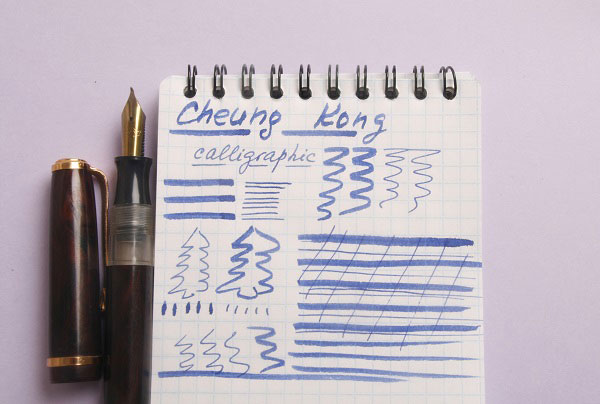 Cheung Kong
calligraphic